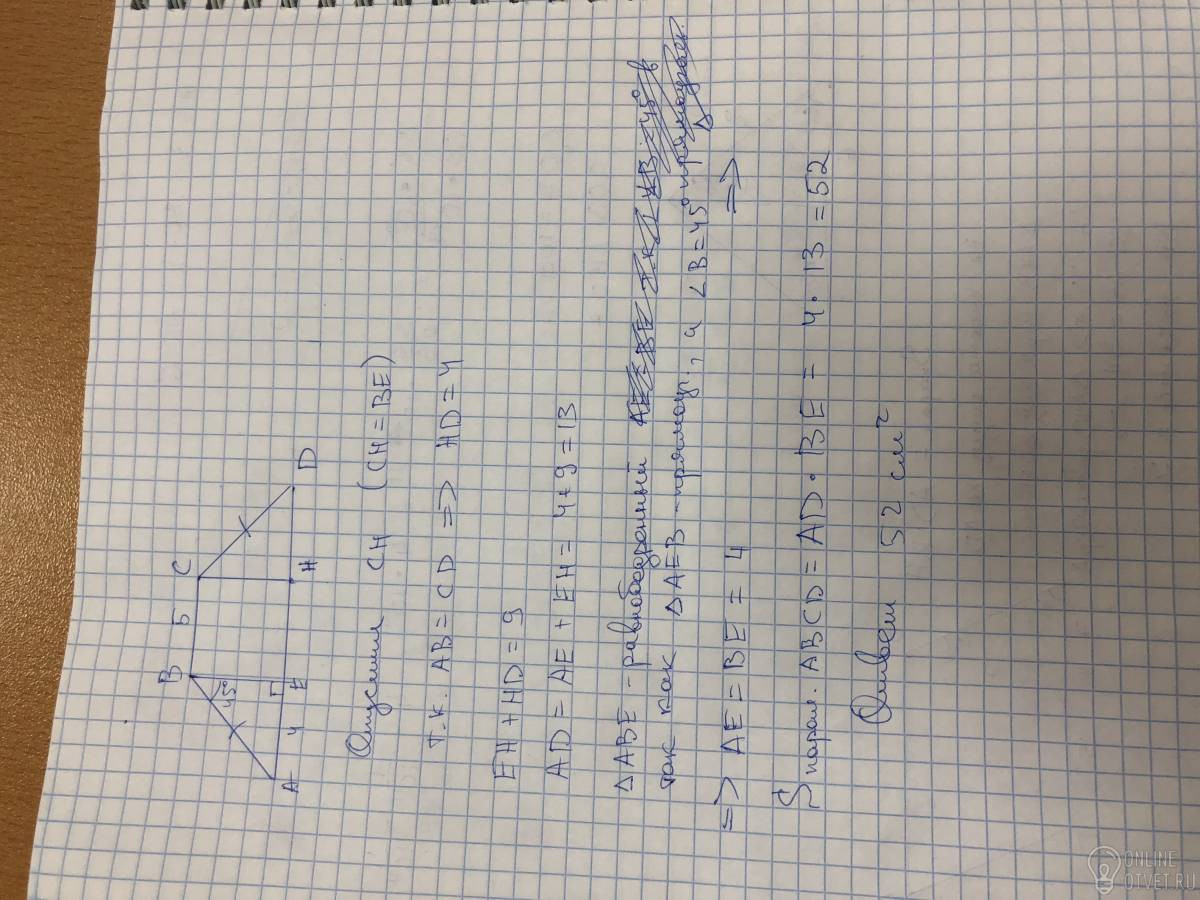 B 5 C
45°
A 4 E H D
Опустим CH (CH = BE)
т.к. AB = CD => HD = 4
EH + HD = 9
AD = AE + EH = 4 + 9 = 13
ΔABE - равнобедренный
так как ΔAEB - прямоуг., и ∠B = 45° =>
=> AE = BE = 4
S парал. ABCD = AD · BE = 4 · 13 = 52
Ответ 52 см²
ONLINE
OTVET.RU